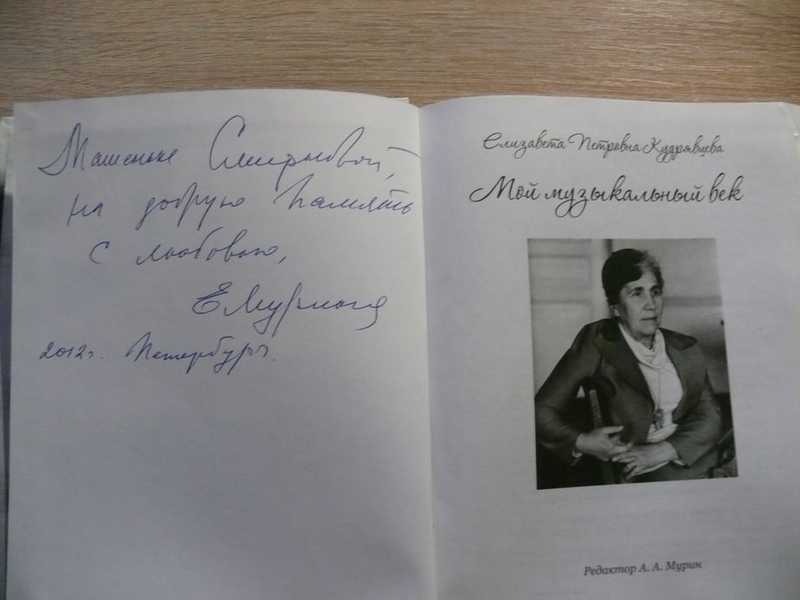 Машеньке Смирновой,
на добрую память
с любовью,
ЕМурина
2012г. Петербург.
Елизавета Петровна Кудрявцева
Мой музыкальный век
Редактор А. А. Мурин